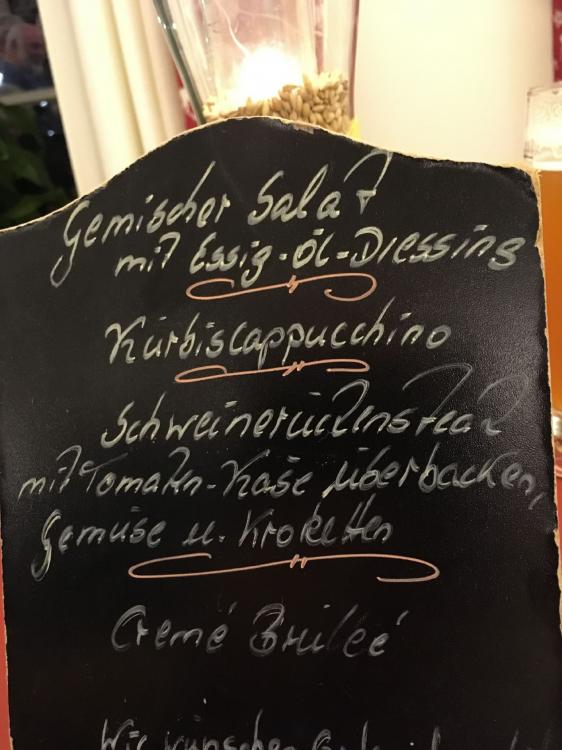 Gemischer Salat
mit Essig-Öl-Dressing
Kürbiscappucchino
Schweinerückensteak
mit Tomaten-Käse überbacken,
Gemüse u. Kroketten
Cremé Brüleé
Wir wünschen